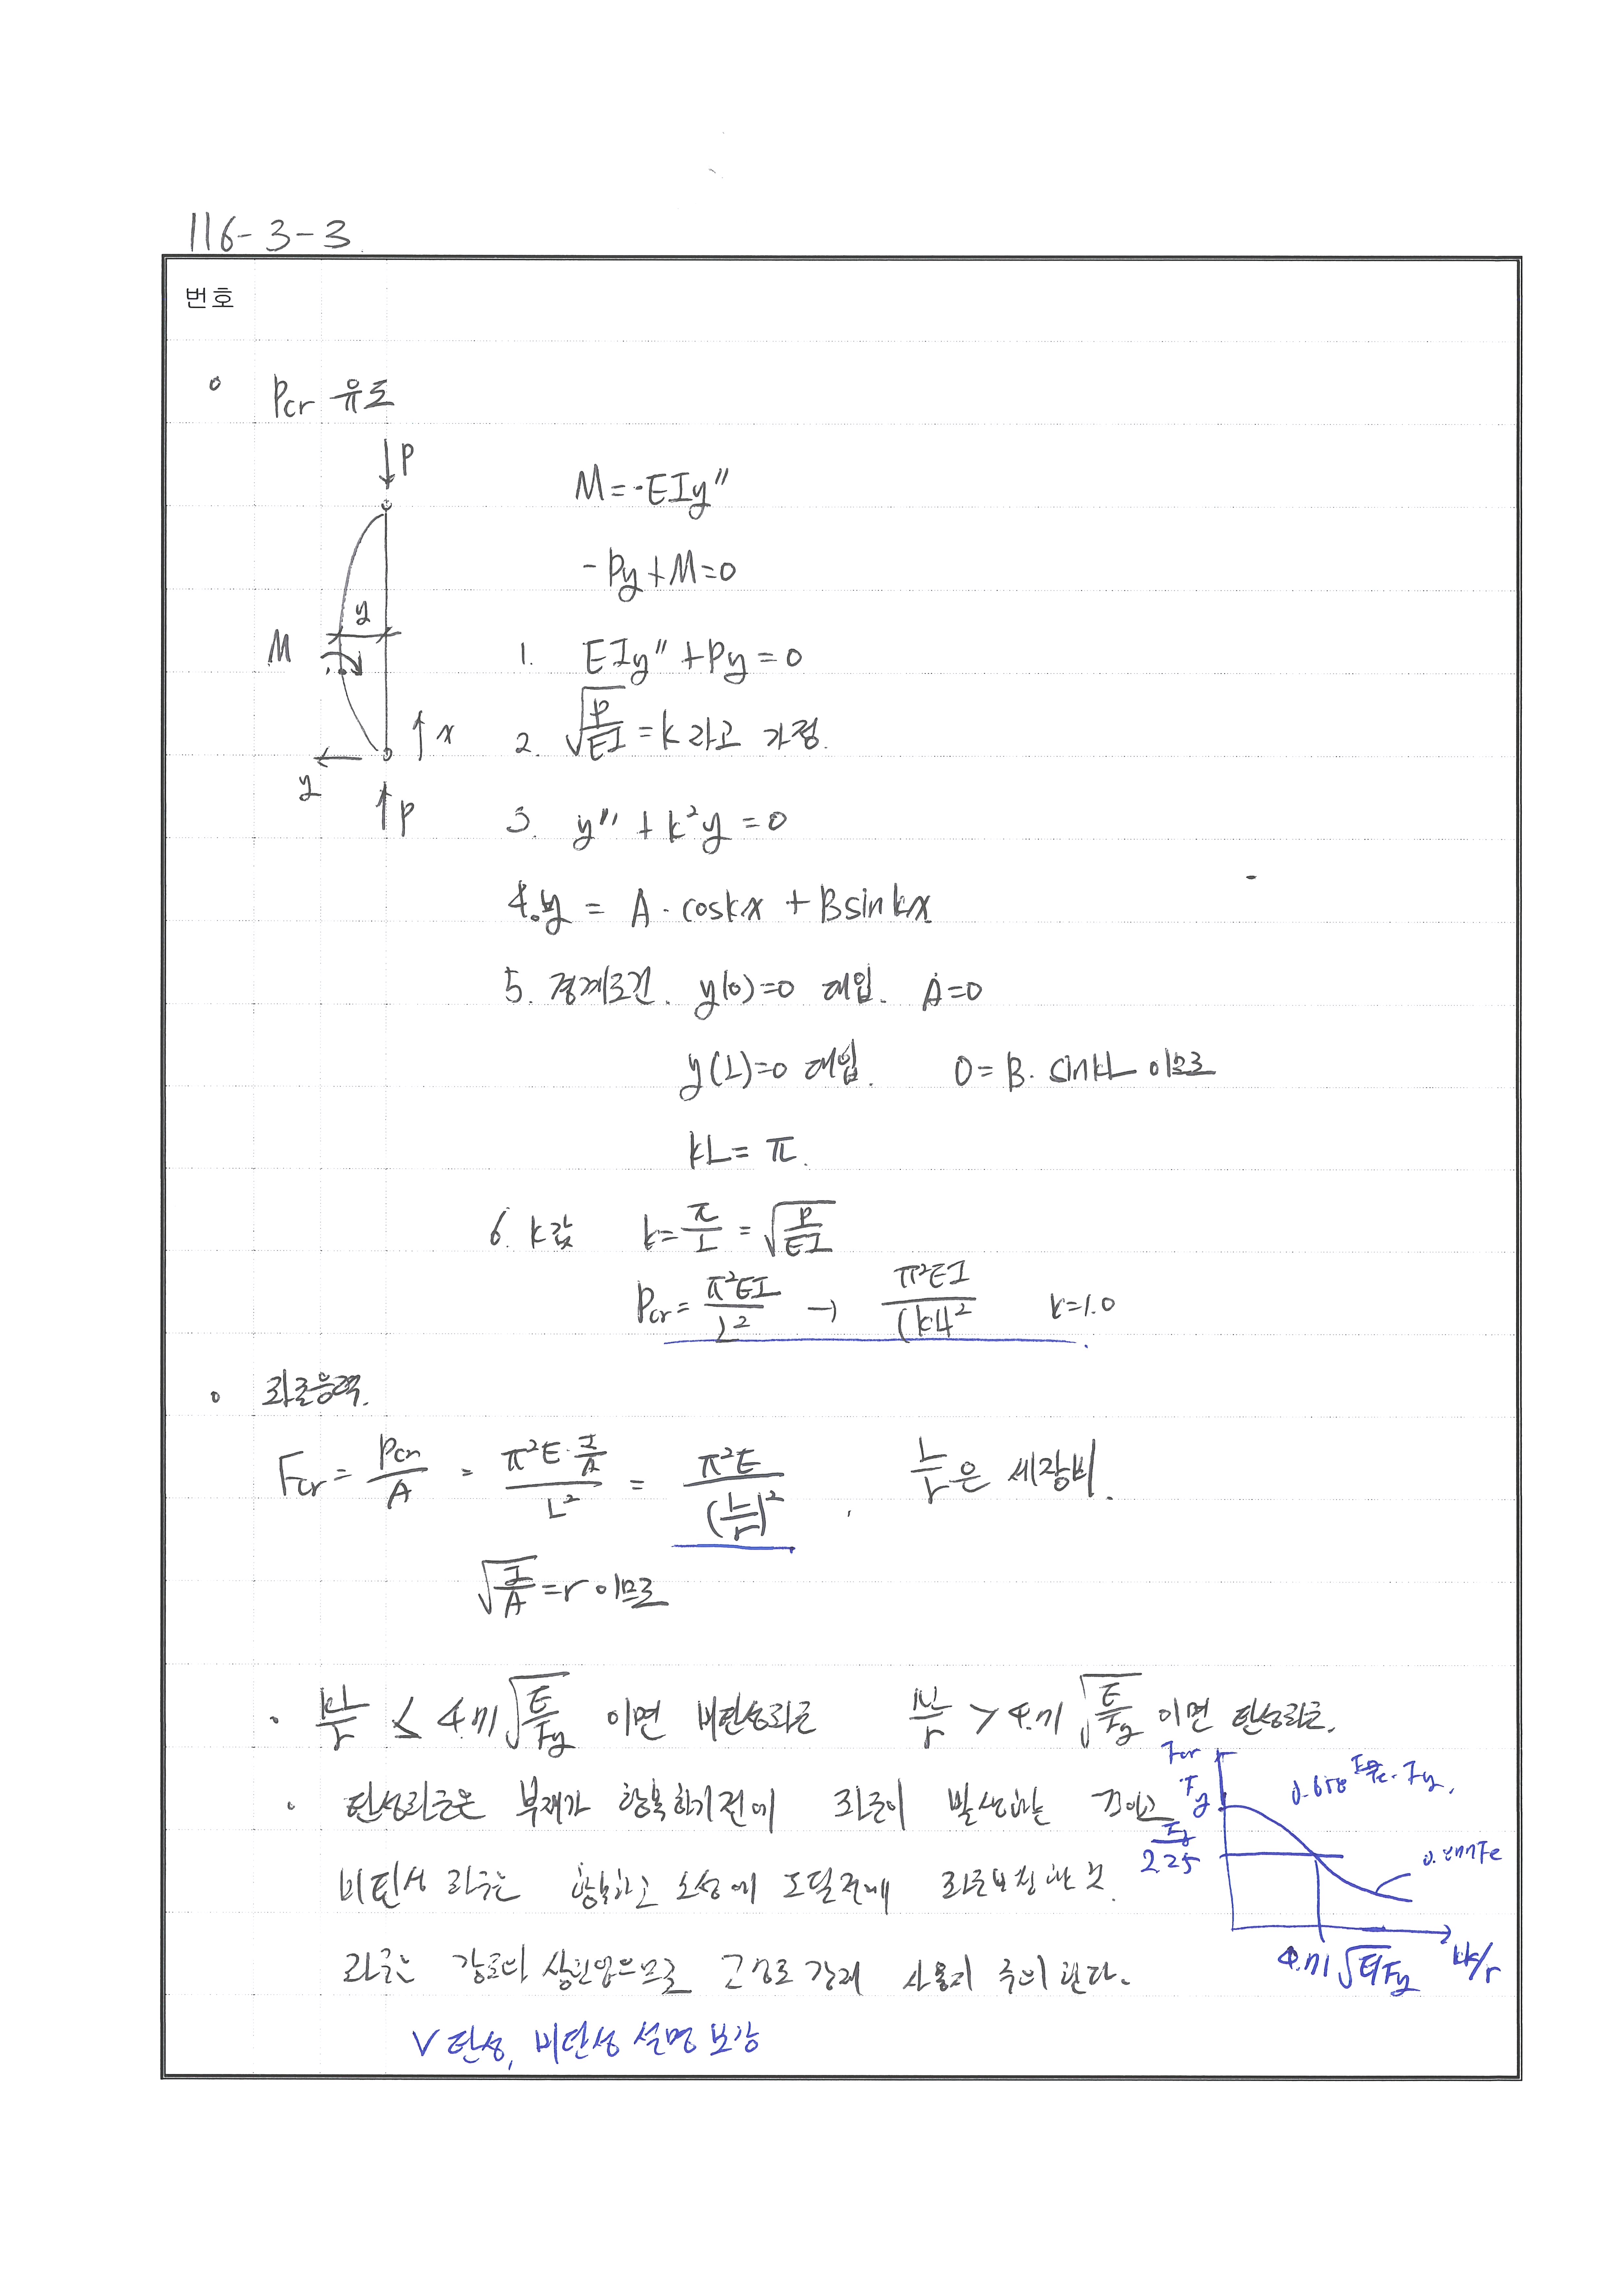 116-3-3
번호
o Pcr 유도
↓P
M=-EIy″
-Py+M=0
y
M
1. EIy″+Py=0
2. √(P/EI)=k 라고 가정.
↑x
y
↑P
3. y″+k²y=0
4. y = A·coskx+Bsinkx
5. 경계조건. y(0)=0 대입. A=0
y(L)=0 대입. 0=B·sinkL 이므로
kL=π.
6. k값 k=π/L=√(P/EI)
Pcr=π²EI/L² → π²EI/(kL)² k=1.0
o 좌굴응력.
Fcr=Pcr/A=π²E·I/A/L²=π²E/(L/r)², L/r은 세장비.
√(I/A)=r 이므로
· kL/r ≤ 4.71√(E/Fy) 이면 비탄성좌굴 kL/r > 4.71√(E/Fy) 이면 탄성좌굴.
· 탄성좌굴은 부재가 항복하기전에 좌굴이 발생하는 것이고
비탄성 좌굴은 항복하고 소성에 도달전에 좌굴 한 것.
좌굴은 강도와 이므로 고강도 강재 사용시 주의 한다.
Fcr
Fy
0.658^Fy/Fe·Fy.
Fy/2.25
0.877Fe
4.71√E/Fy
kL/r
V 탄성, 비탄성 설명 보강